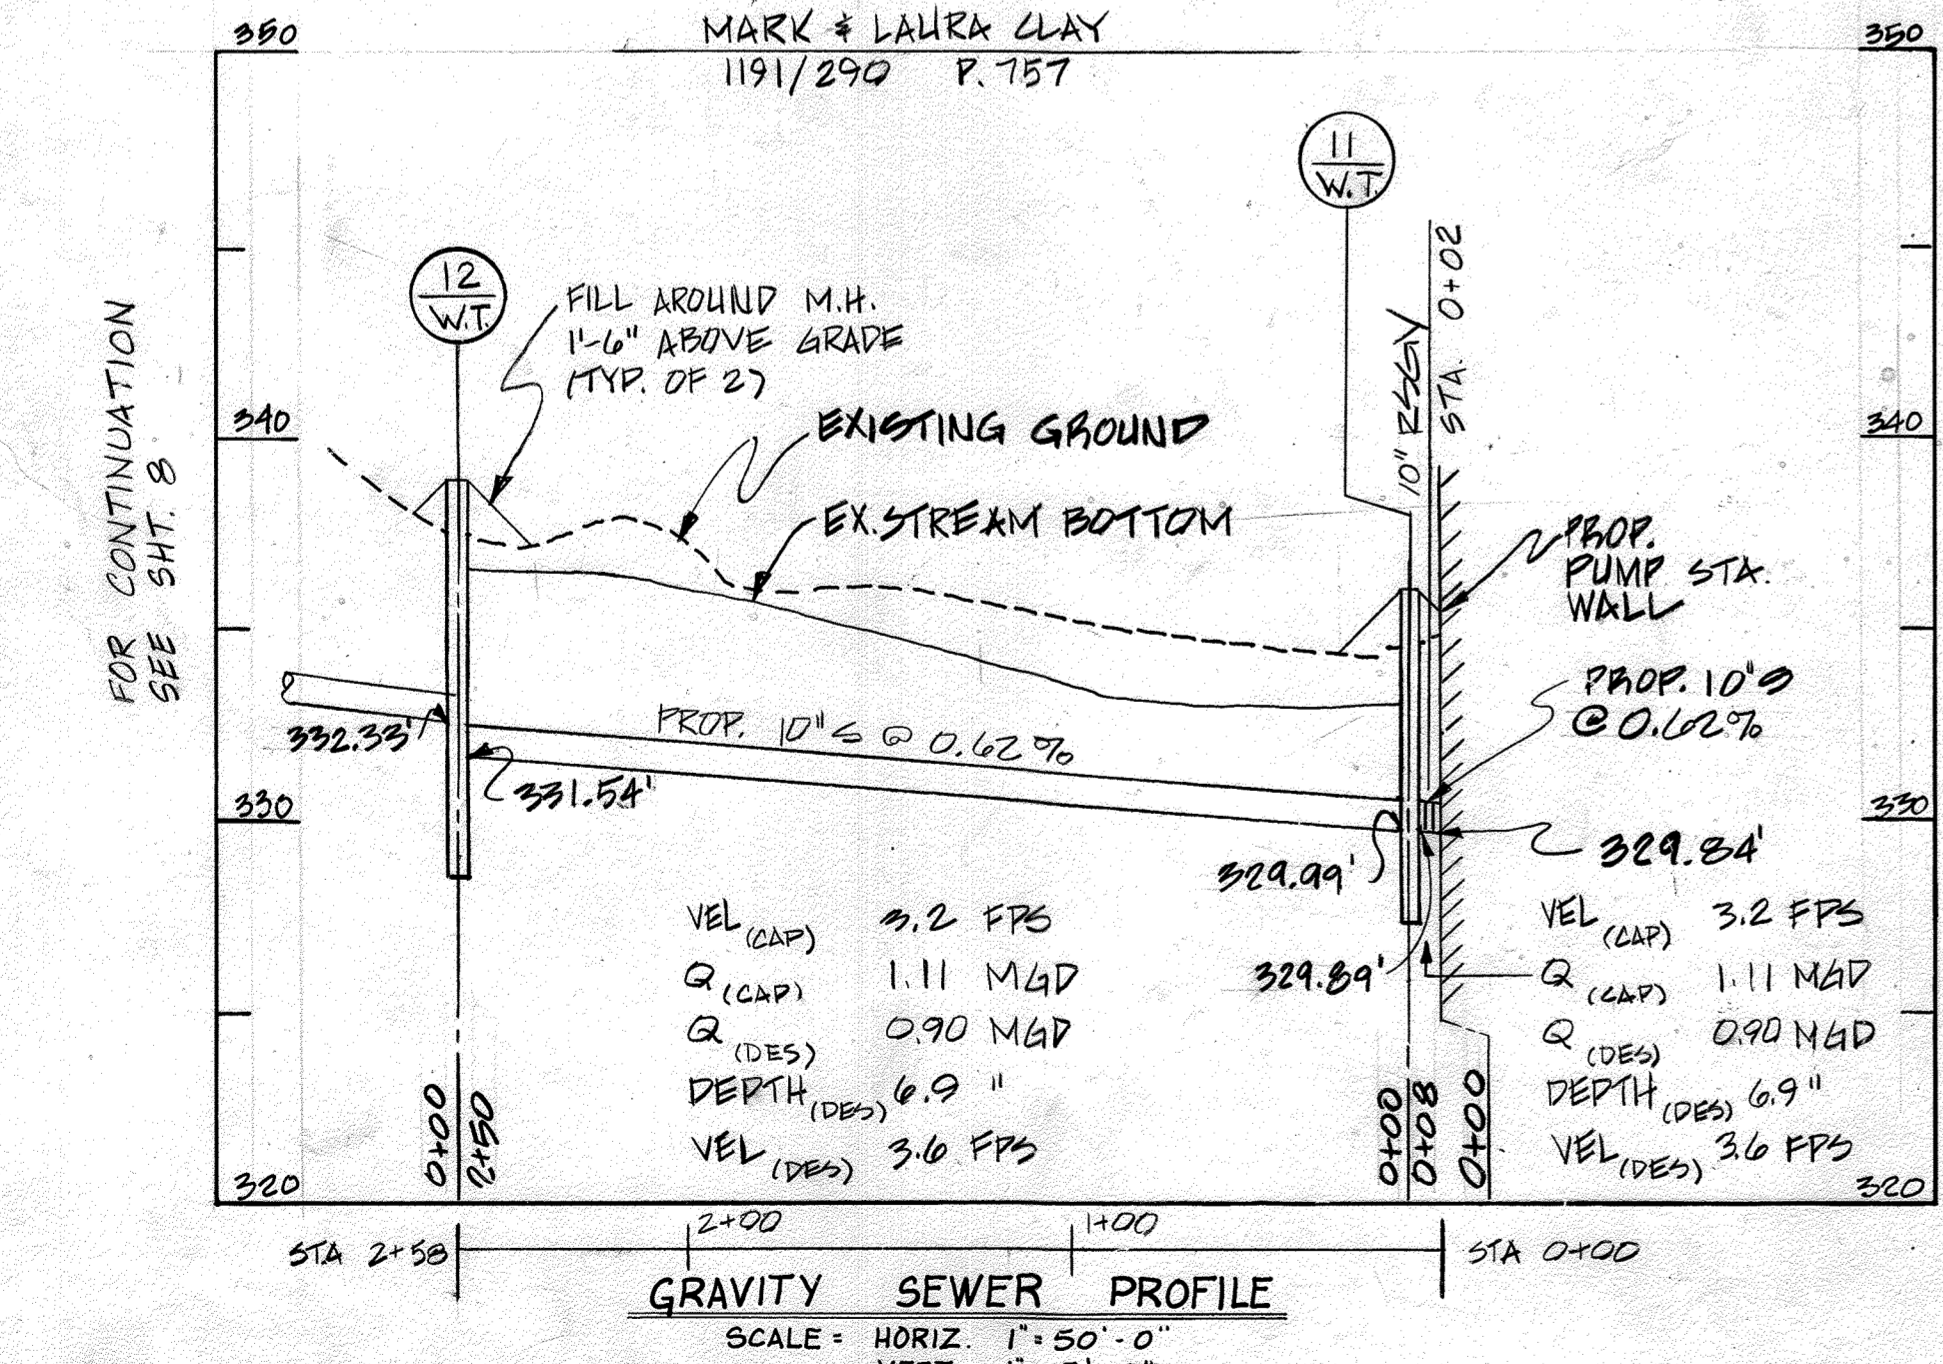 350
MARK & LAURA CLAY
350
1191/290 P. 757
11
W.T.
12
W.T.
FILL AROUND M.H.
1'-6" ABOVE GRADE
(TYP. OF 2)
10" RSGV
STA. 0+02
FOR CONTINUATION
SEE SHT. 8
340
340
EXISTING GROUND
EX. STREAM BOTTOM
PROP.
PUMP STA.
WALL
PROP. 10"S
@ 0.62%
332.33'
PROP. 10"S @ 0.62%
331.54'
330
330
329.99'
329.84'
329.89'
VEL (CAP) 3.2 FPS
Q (CAP) 1.11 MGD
Q (DES) 0.90 MGD
DEPTH (DES) 6.9 "
VEL (DES) 3.6 FPS
VEL (CAP) 3.2 FPS
Q (CAP) 1.11 MGD
Q (DES) 0.90 MGD
DEPTH (DES) 6.9"
VEL (DES) 3.6 FPS
0+00
2+50
0+00
0+08
0+00
320
320
2+00
1+00
STA 2+58
STA 0+00
GRAVITY SEWER PROFILE
SCALE = HORIZ. 1" = 50'-0"